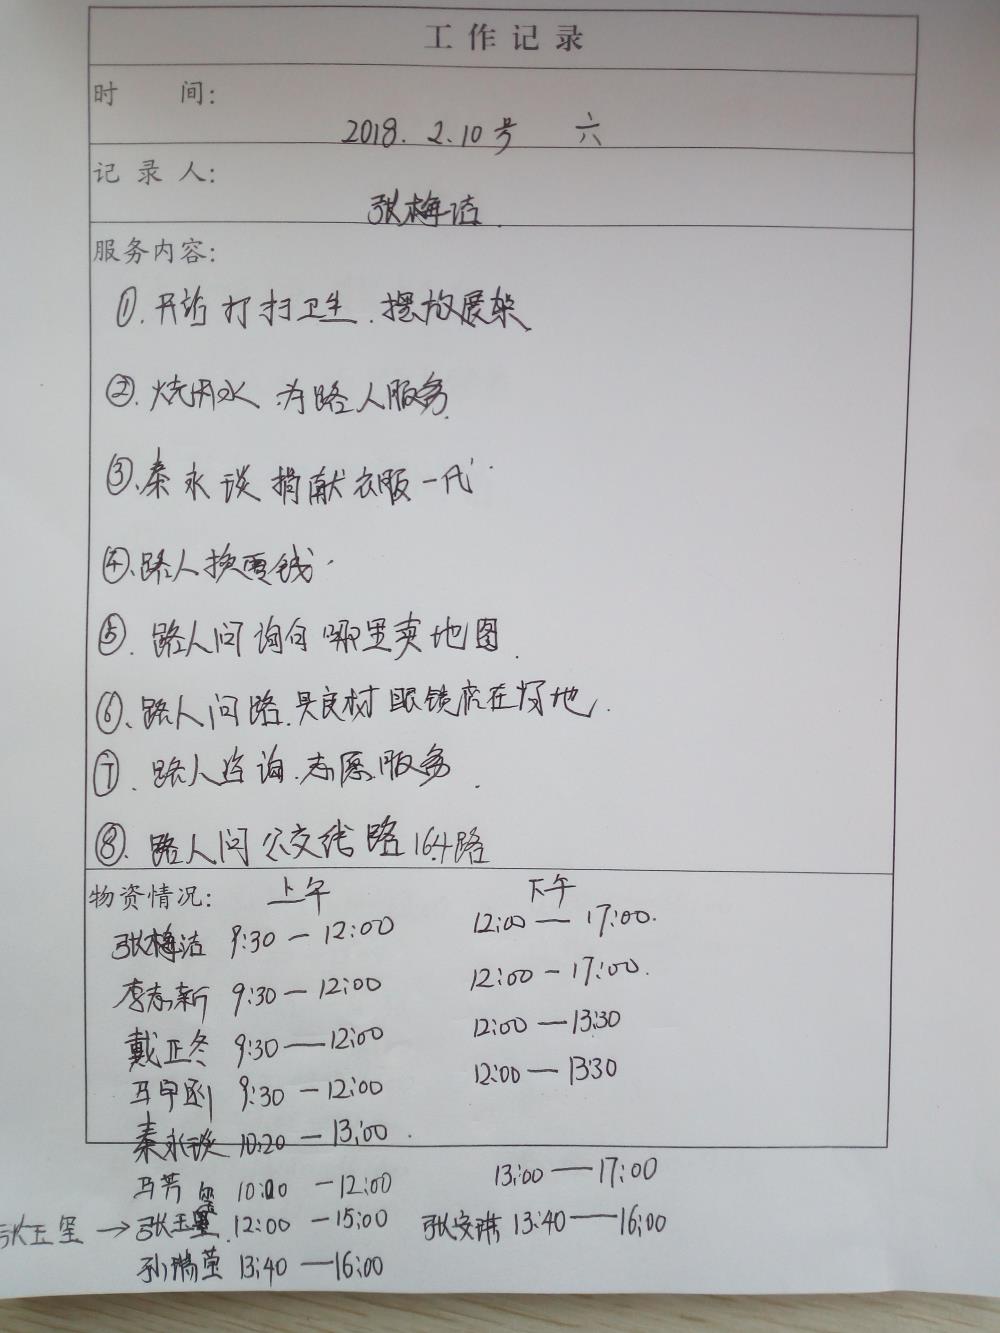 工作记录
时 间:
2018. 2.10号 六
记录人:
张梅洁
服务内容:
①. 开站打扫卫生.摆放展架
②. 烧开水.为路人服务
③、秦永琰捐献衣服一代
④、路人换零钱.
⑤. 路人问询问哪里卖地图.
⑥、路人问路.吴良材眼镜店在何地.
⑦. 路人咨询.志愿服务.
⑧. 路人问公交线路164路
物资情况: 上午 下午
张梅洁 9:30 — 12:00 12:00 — 17:00.
李志新 9:30 — 12:00 12:00 — 17:00.
戴正冬 9:30 — 12:00 12:00 — 13:30
马宇 9:30 — 12:00 12:00 — 13:30
秦永琰 10:20 — 13:00.
马芳 10:00 — 12:00 13:00 — 17:00
张玉玺 → 张玉玺 12:00 — 15:00 张安琪 13:40 — 16:00
孙瑞莹 13:40 — 16:00